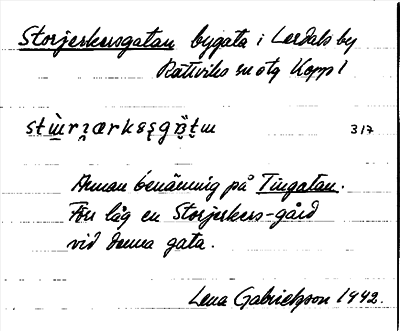 Storjerkersgatan bygata i Lerdals by
Rättviks sn otg Kopp l
317
Annan benämnig på Tingatan.
Förr låg en Storjerkers-gård
vid denna gata.
Lena Gabrielsson 1992.